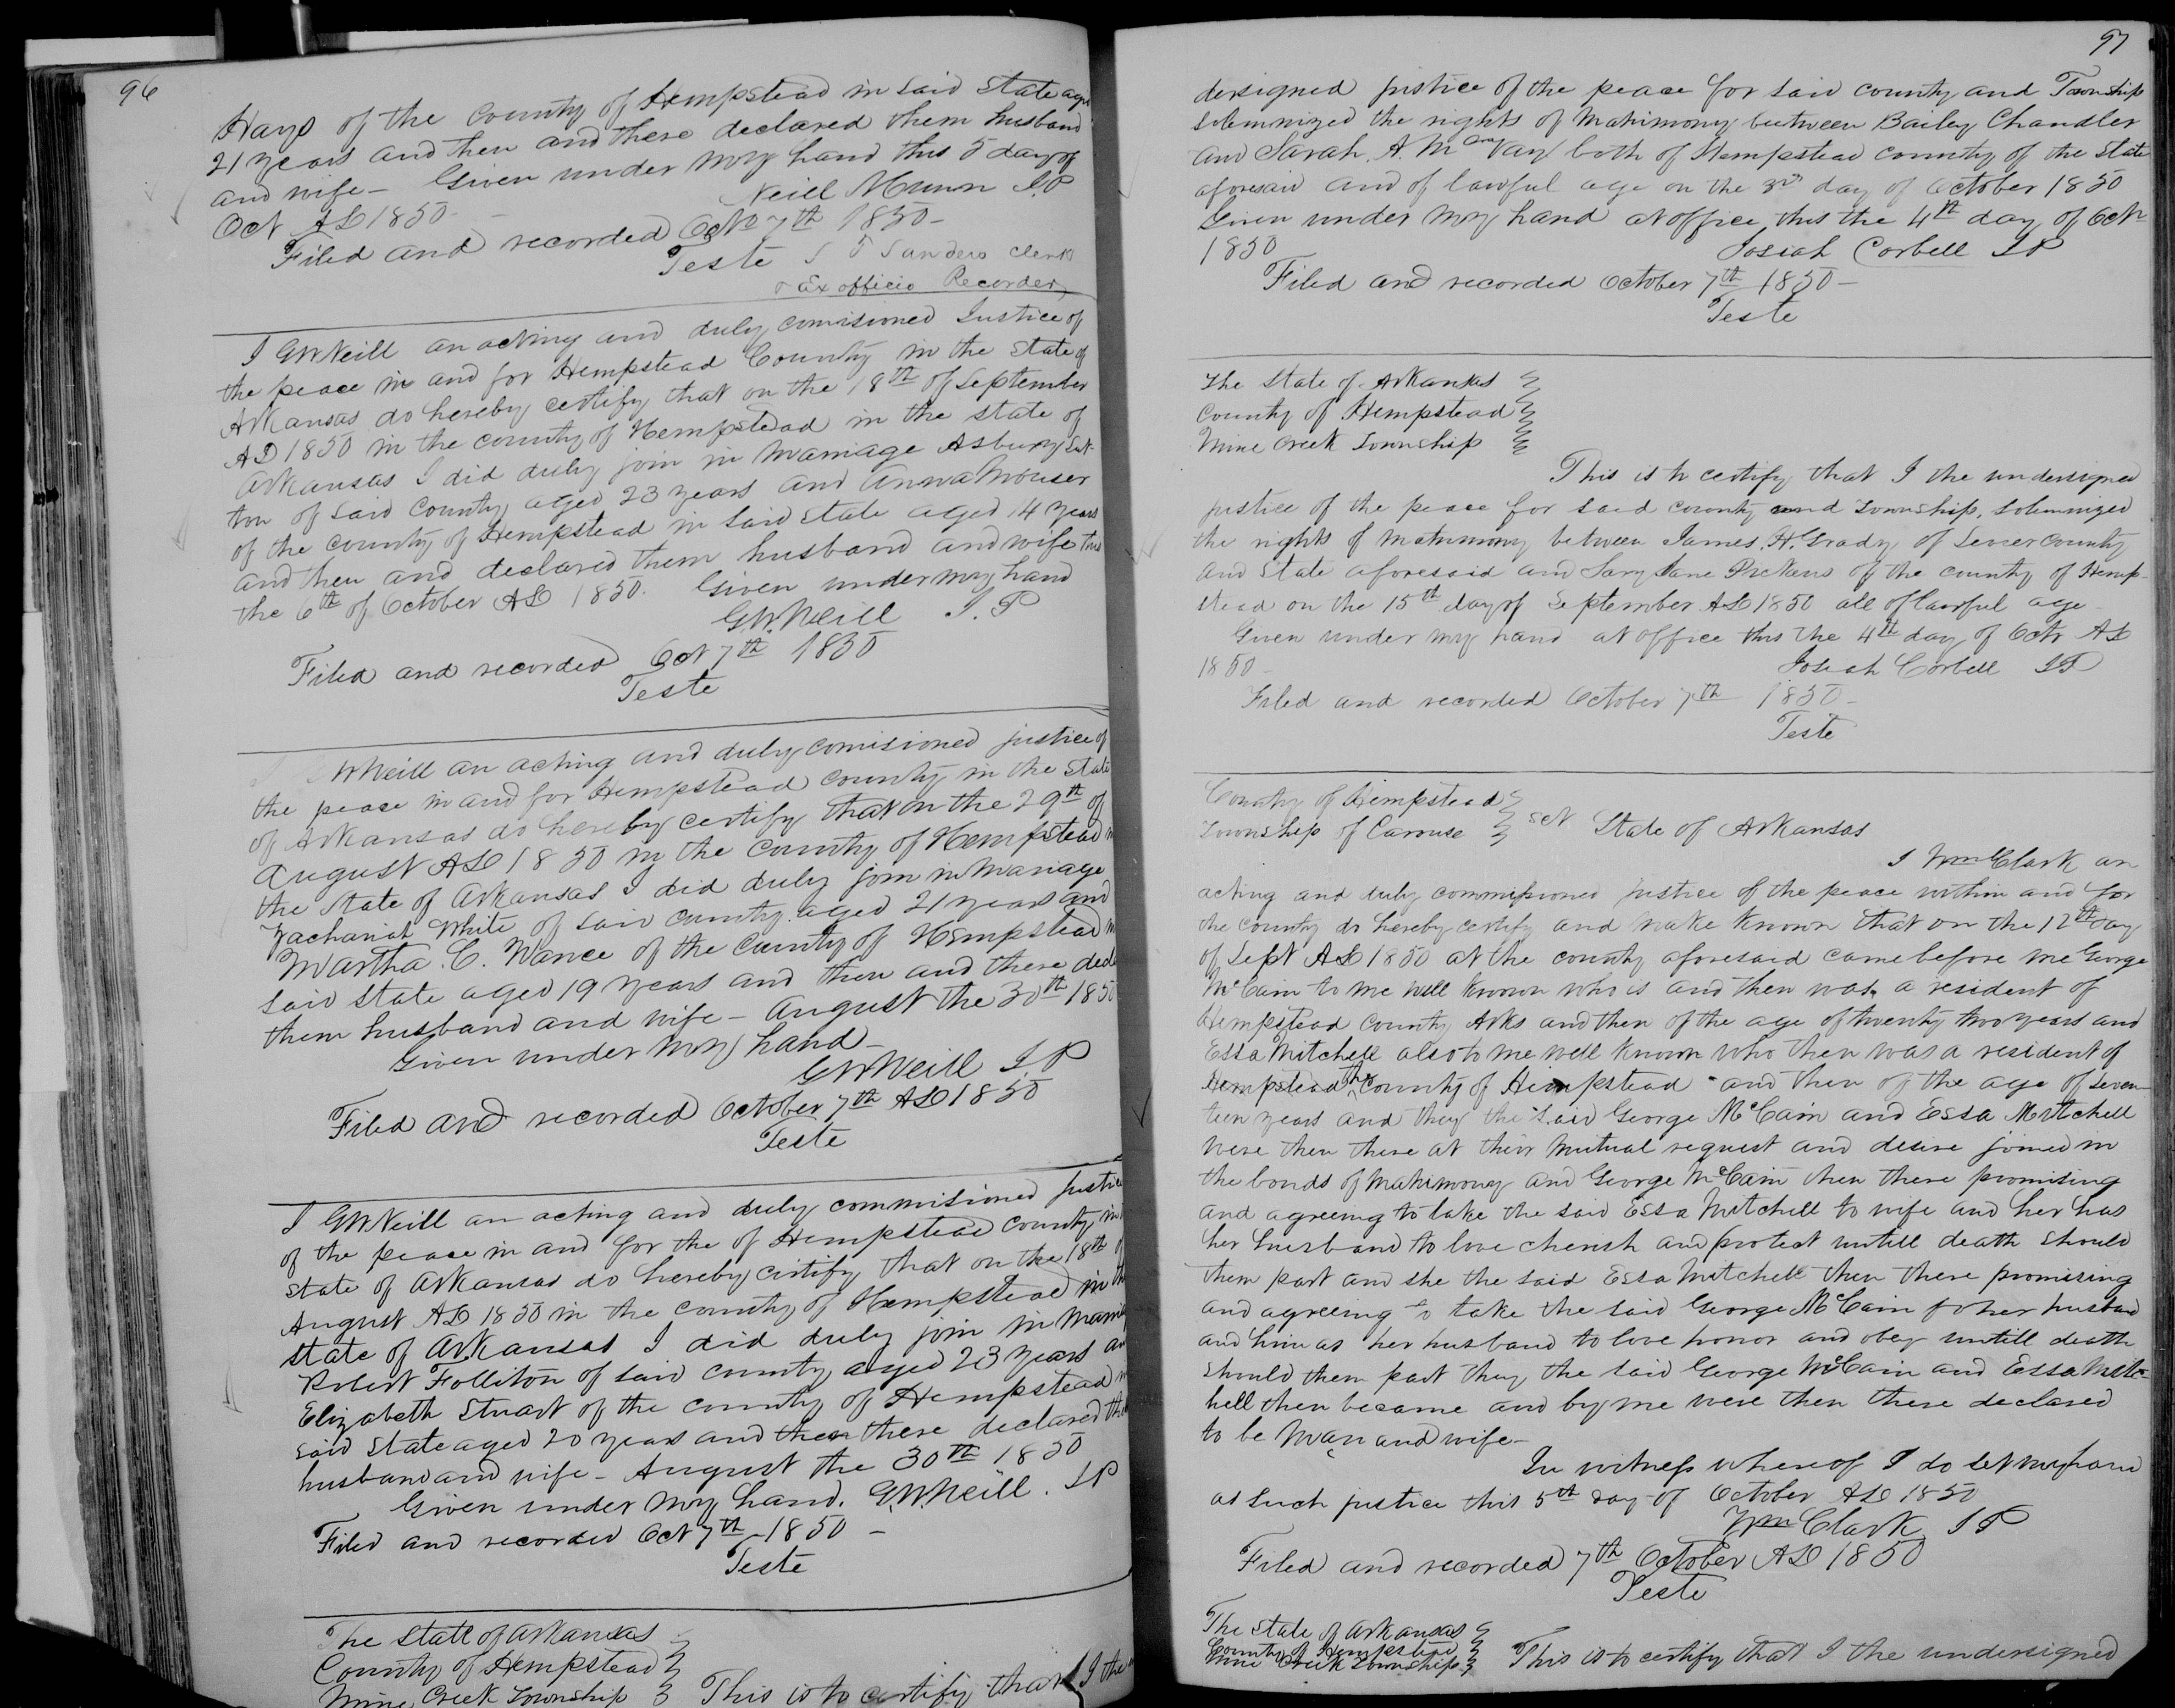 96
Hays of the County of Hempstead in said State aged
21 years and then and there declared them husband
and wife - Given under my hand this 5 day of
Oct AD 1850 - Neill Munn J.P
Filed and recorded Oct 7th 1850 -
Teste Sanders Clerk
& Ex officio Recorder
I GW Neill an acting and duly comisioned Justice of
the peace in and for Hempstead County in the State of
Arkansas do hereby certify that on the 18th of September
AD 1850 in the county of Hempstead in the state of
Arkansas I did duly join in Marriage Asbury Sut-
ton of said County aged 23 years and Anna Mouser
of the county of Hempstead in said state aged 14 years
and then and declared them husband and wife this
the 6th of October AD 1850. Given under my hand
GW. Neill J. P
Filed and recorded Oct 7th 1850
Teste
W Neill an acting and duly comisioned justice of
the pease in and for Hempstead county in the State
of Arkansas do hereby certify that on the 29th of
August AD 1850 in the County of Hempstead in
the State of Arkansas I did duly join in Mariage
Zachariah White of said county aged 21 years and
Martha. C. Nance of the County of Hempstead in
said state aged 19 years and then and there decl
them husband and wife - August the 30th 1850
Given under my hand -
GW Neill J. P
Filed and recorded October 7th AD 1850
Teste
I GW Neill an acting and duly commisioned Justice
of the peace in and for the of Hempstead County in
state of Arkansas do hereby certify that on the 18th of
August AD 1850 in the county of Hempstead in th
state of Arkansas I did duly join in Marri
Robert Folliton of said county aged 23 years an
Elizabeth Stuart of the county of Hempstead in
said state aged 20 years and then there declared the
husband and wife - August the 30th 1850
Given under my hand. GW. Neill. J P
Filed and recorded Oct 7th 1850 -
Teste
The State of Arkansas
County of Hempstead
Mine Creek Township This is to certify that I the
97
dersigned justice of the peace for said county and Township
solemnized the rights of Matrimony between Bailey Chandler
and Sarah. A. McVay both of Hempstead county of the State
aforesaid and of lawful age on the 3rd day of October 1850
Given under my hand at office this the 4th day of Oct
1850 Josiah Corbell J P
Filed and recorded October 7th 1850 -
Teste
The State of Arkansas
County of Hempstead
Mine Creek Township
This is to certify that I the undersigned
justice of the peace for said county and Township, solemnized
the rights of matrimony between James. H. Grady of Sevier county
and State aforesaid and Jane Pickens of the county of Hemp-
stead on the 15th day of September AD 1850 all of lawful age -
Given under my hand at office this the 4th day of Octr AD
1850 - Josiah Corbell JP
Filed and recorded October 7th 1850 -
Teste
County of Hempstead
Township of Carouse Sct State of Arkansas
I Wm Clark an
acting and duly commissioned justice of the peace within and for
the county do hereby certify and make known that on the 12th day
of Sept AD 1850 at the county aforesaid came before me George
McCain to me well known who is and then was a resident of
Hempstead County Arks and then of the age of twenty two years and
Essa Mitchell also to me well known who then was a resident of
Hempstead the County of Hempstead and then of the age of seven-
teen years and they the said George McCain and Essa Mitchell
were then there at their mutual request and desire joined in
the bonds of matrimony and George McCain then there promising
and agreeing to take the said Essa Mitchell to wife and her has
her husband to love cherish and protect untill death should
them part and she the said Essa Mitchell then there promising
and agreeing to take the said George McCain to her husband
and him as her husband to love honor and obey untill death
should them part they the said George McCain and Essa Mitc-
hell then became and by me were then there declared
to be Man and wife -
In witness whereof I do set my hand
as such justice this 5th day of October AD 1850
Wm Clark J P
Filed and recorded 7th October AD 1850
Teste
The State of Arkansas
County of Hempstead
Mine Creek Township This is to certify that I the undersigned